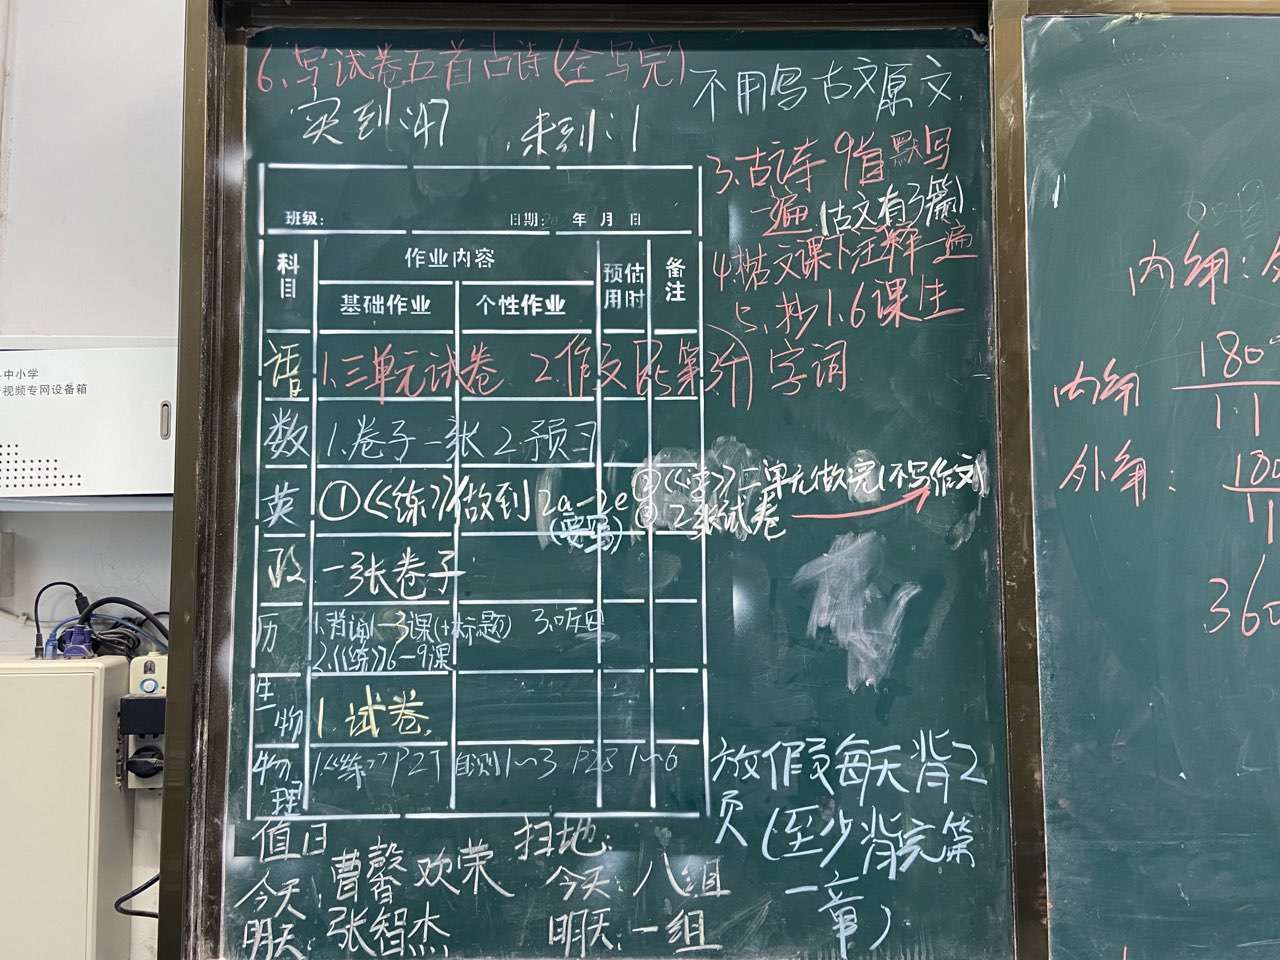 6.写试卷五首古诗(全写完)
不用写古文原文.
实到:47 未到:1
3.古诗9首默写
一遍(古文有3篇).
4.抄古文课下注释一遍
5.抄1.6课生
字词
班级: 日期: 年 月 日
科目 作业内容 预估用时 备注
基础作业 个性作业
语 1.三单元试卷 2.作文
数 1.卷子一张 2.预习
英 ①《练》做到2a-2e
(要写)
二单元做完(不写作文)
③2张试卷
政 一张卷子
历 1.背诵1-3课(+标题)
2.《练》6-9课
生物 1.试卷.
物理 1.《练》P27 自测1~3 P28 1~6
放假每天背2
页(至少背完第
一章)
值日
今天:曹馨 欢荣
明天:张智杰
扫地:
今天:八组
明天:一组
中小学
视频专网设备箱
内角:
内角 180°
外角: